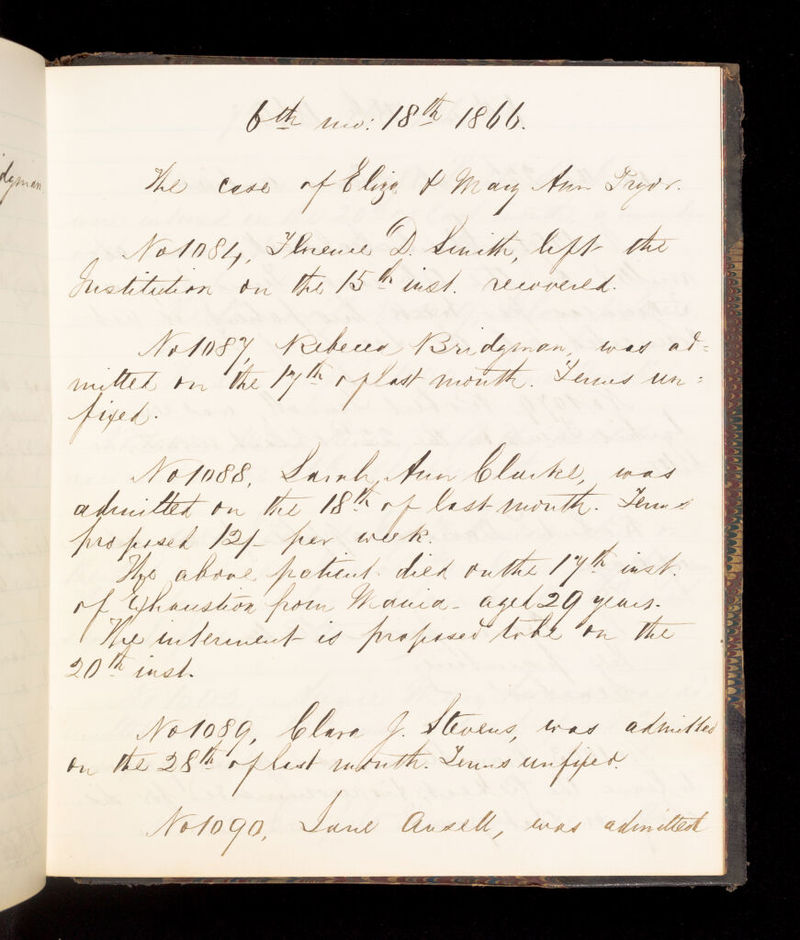 dgman.
6th mo: 18th 1866.
The case of Eliza & Mary Ann Pryor.
No 1084, Florence D. Smith, left the
Institution on the 15th inst. recovered.
No 1087, Rebecca Bridgman, was ad=
mitted on the 17th of last month. Terms un=
fixed.
No 1088, Sarah Ann Clarke, was
admitted on the 18th of last month. Terms
proposed 12/- per week.
The above patient died on the 17th inst.
of Exhaustion from Mania - aged 29 years.
The interment is proposed to be on the
20th inst.
No 1089, Clara J. Stevens, was admitted
on the 28th of last month. Terms unfixed.
No 1090, Jane Ansell, was admitted